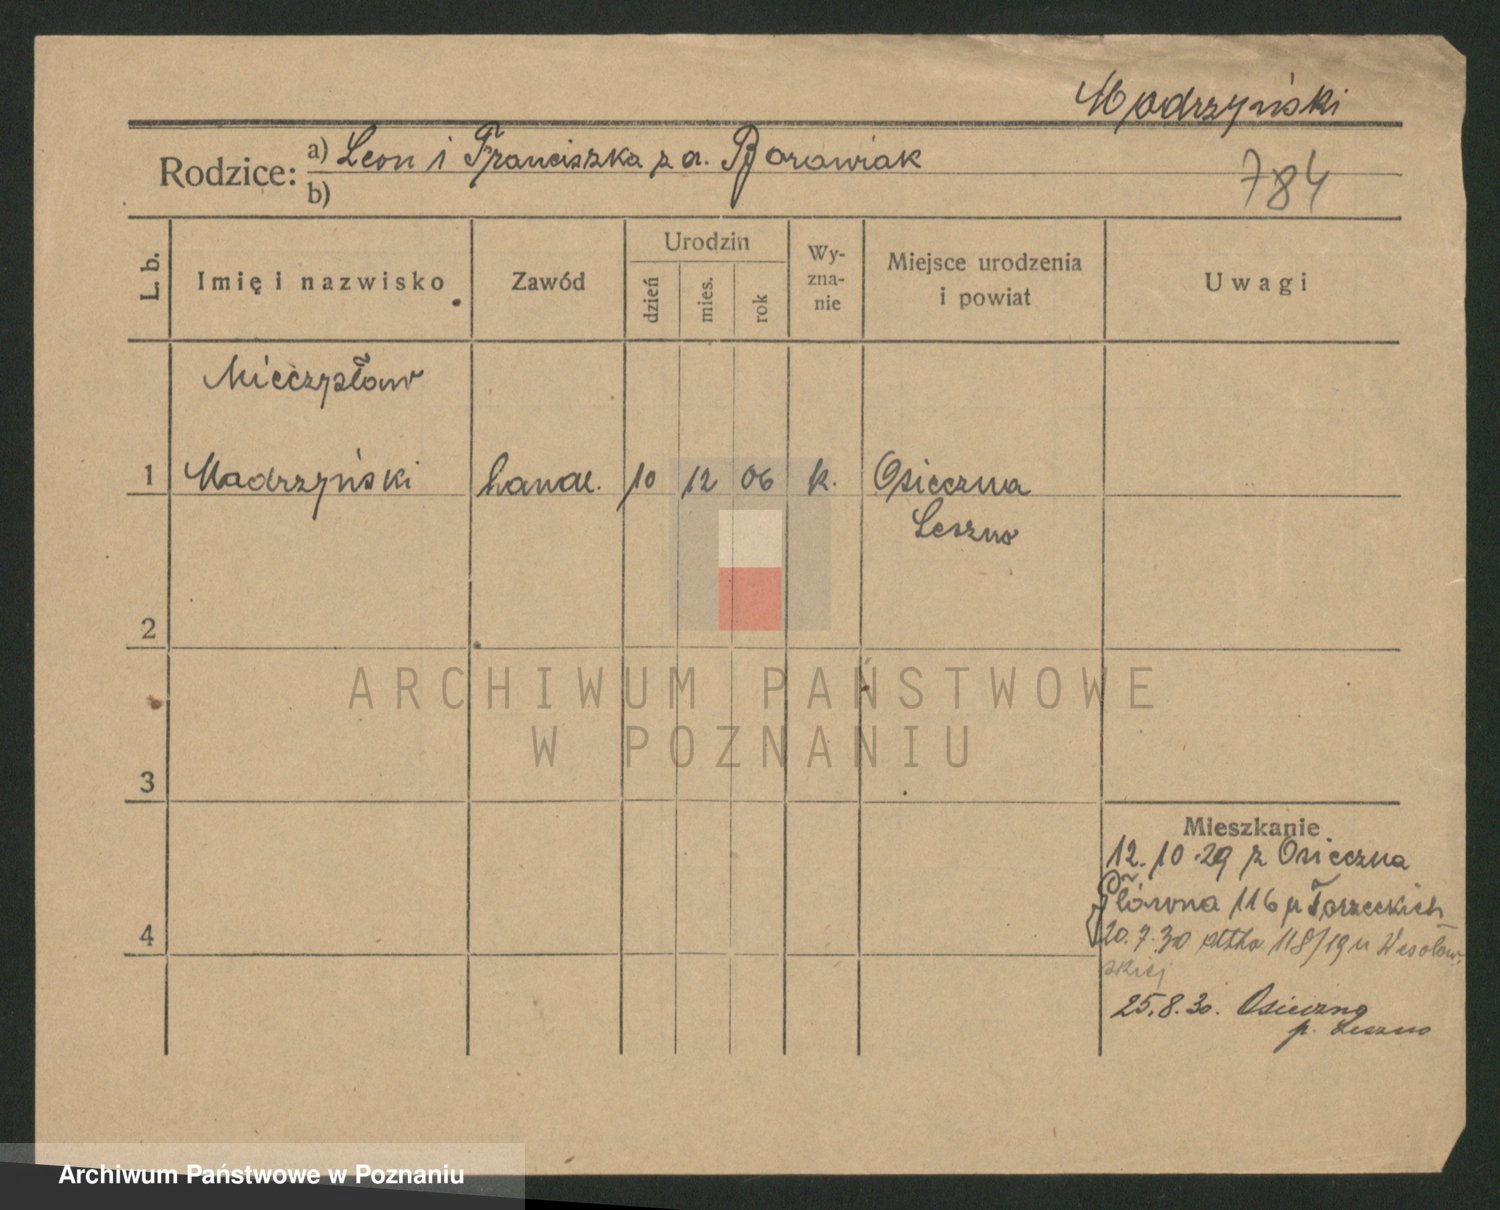 Modrzyński
Rodzice: a) Leon i Franciszka z d. Borowiak
b)
784
L. b.
Imię i nazwisko
Zawód
Urodzin
dzień
mies.
rok
Wy-
zna-
nie
Miejsce urodzenia
i powiat
Uwagi
Mieczysław
1 Modrzyński handl. 10 12 06 k. Osieczna
Leszno
2
ARCHIWUM PAŃSTWOWE
W POZNANIU
3
Mieszkanie
12.10.29 z Osieczna
Główna 116 u Torzeckich
4
20.7.30 118/19 u Wesołow-
skiej
25.8.30. Osieczno
p. Leszno
Archiwum Państwowe w Poznaniu